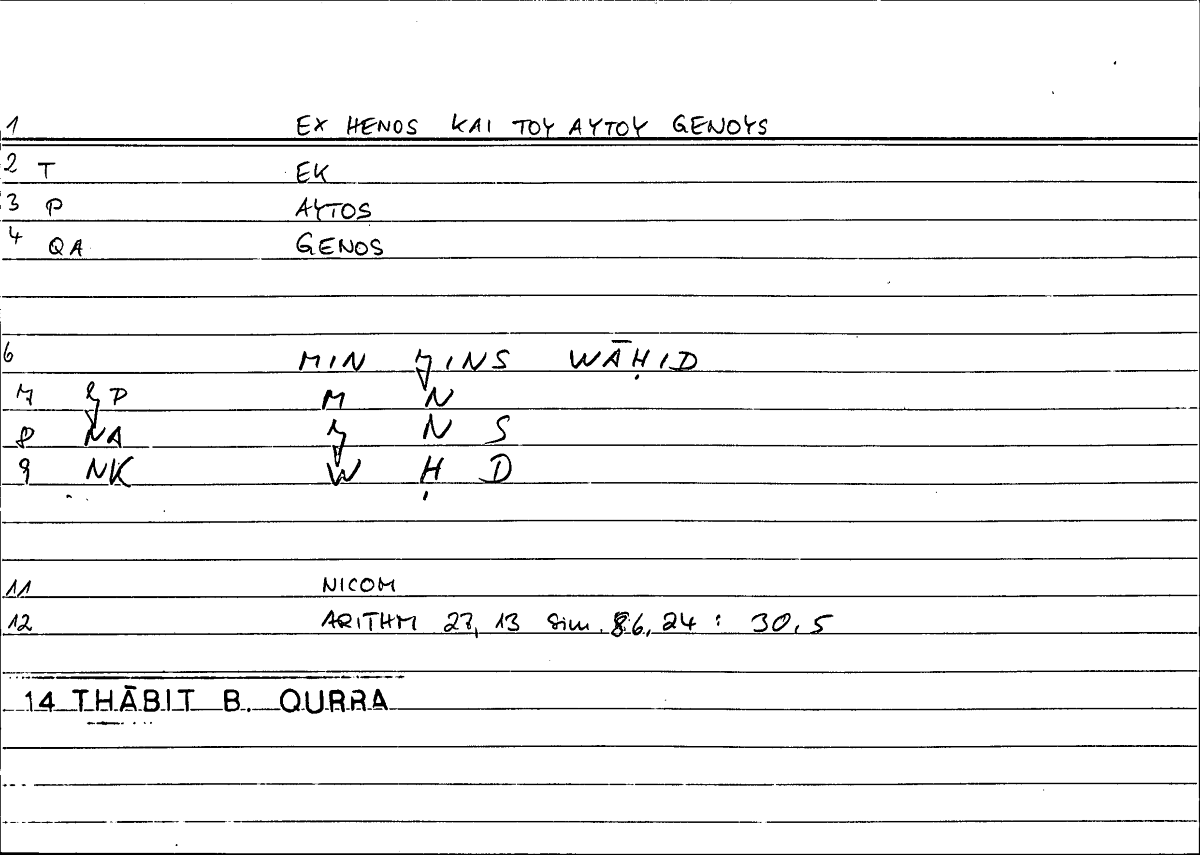 1 EX HENOS KAI TOY AYTOY GENOYS
2 T EK
3 P AYTOS
4 QA GENOS
6 MIN ǦINS WĀḤID
7 M N
8 NA Ǧ N S
9 NK W Ḥ D
11 NICOM
12 ARITHM 27, 13 sim. 86, 24 : 30, 5
14 THĀBIT B. QURRA